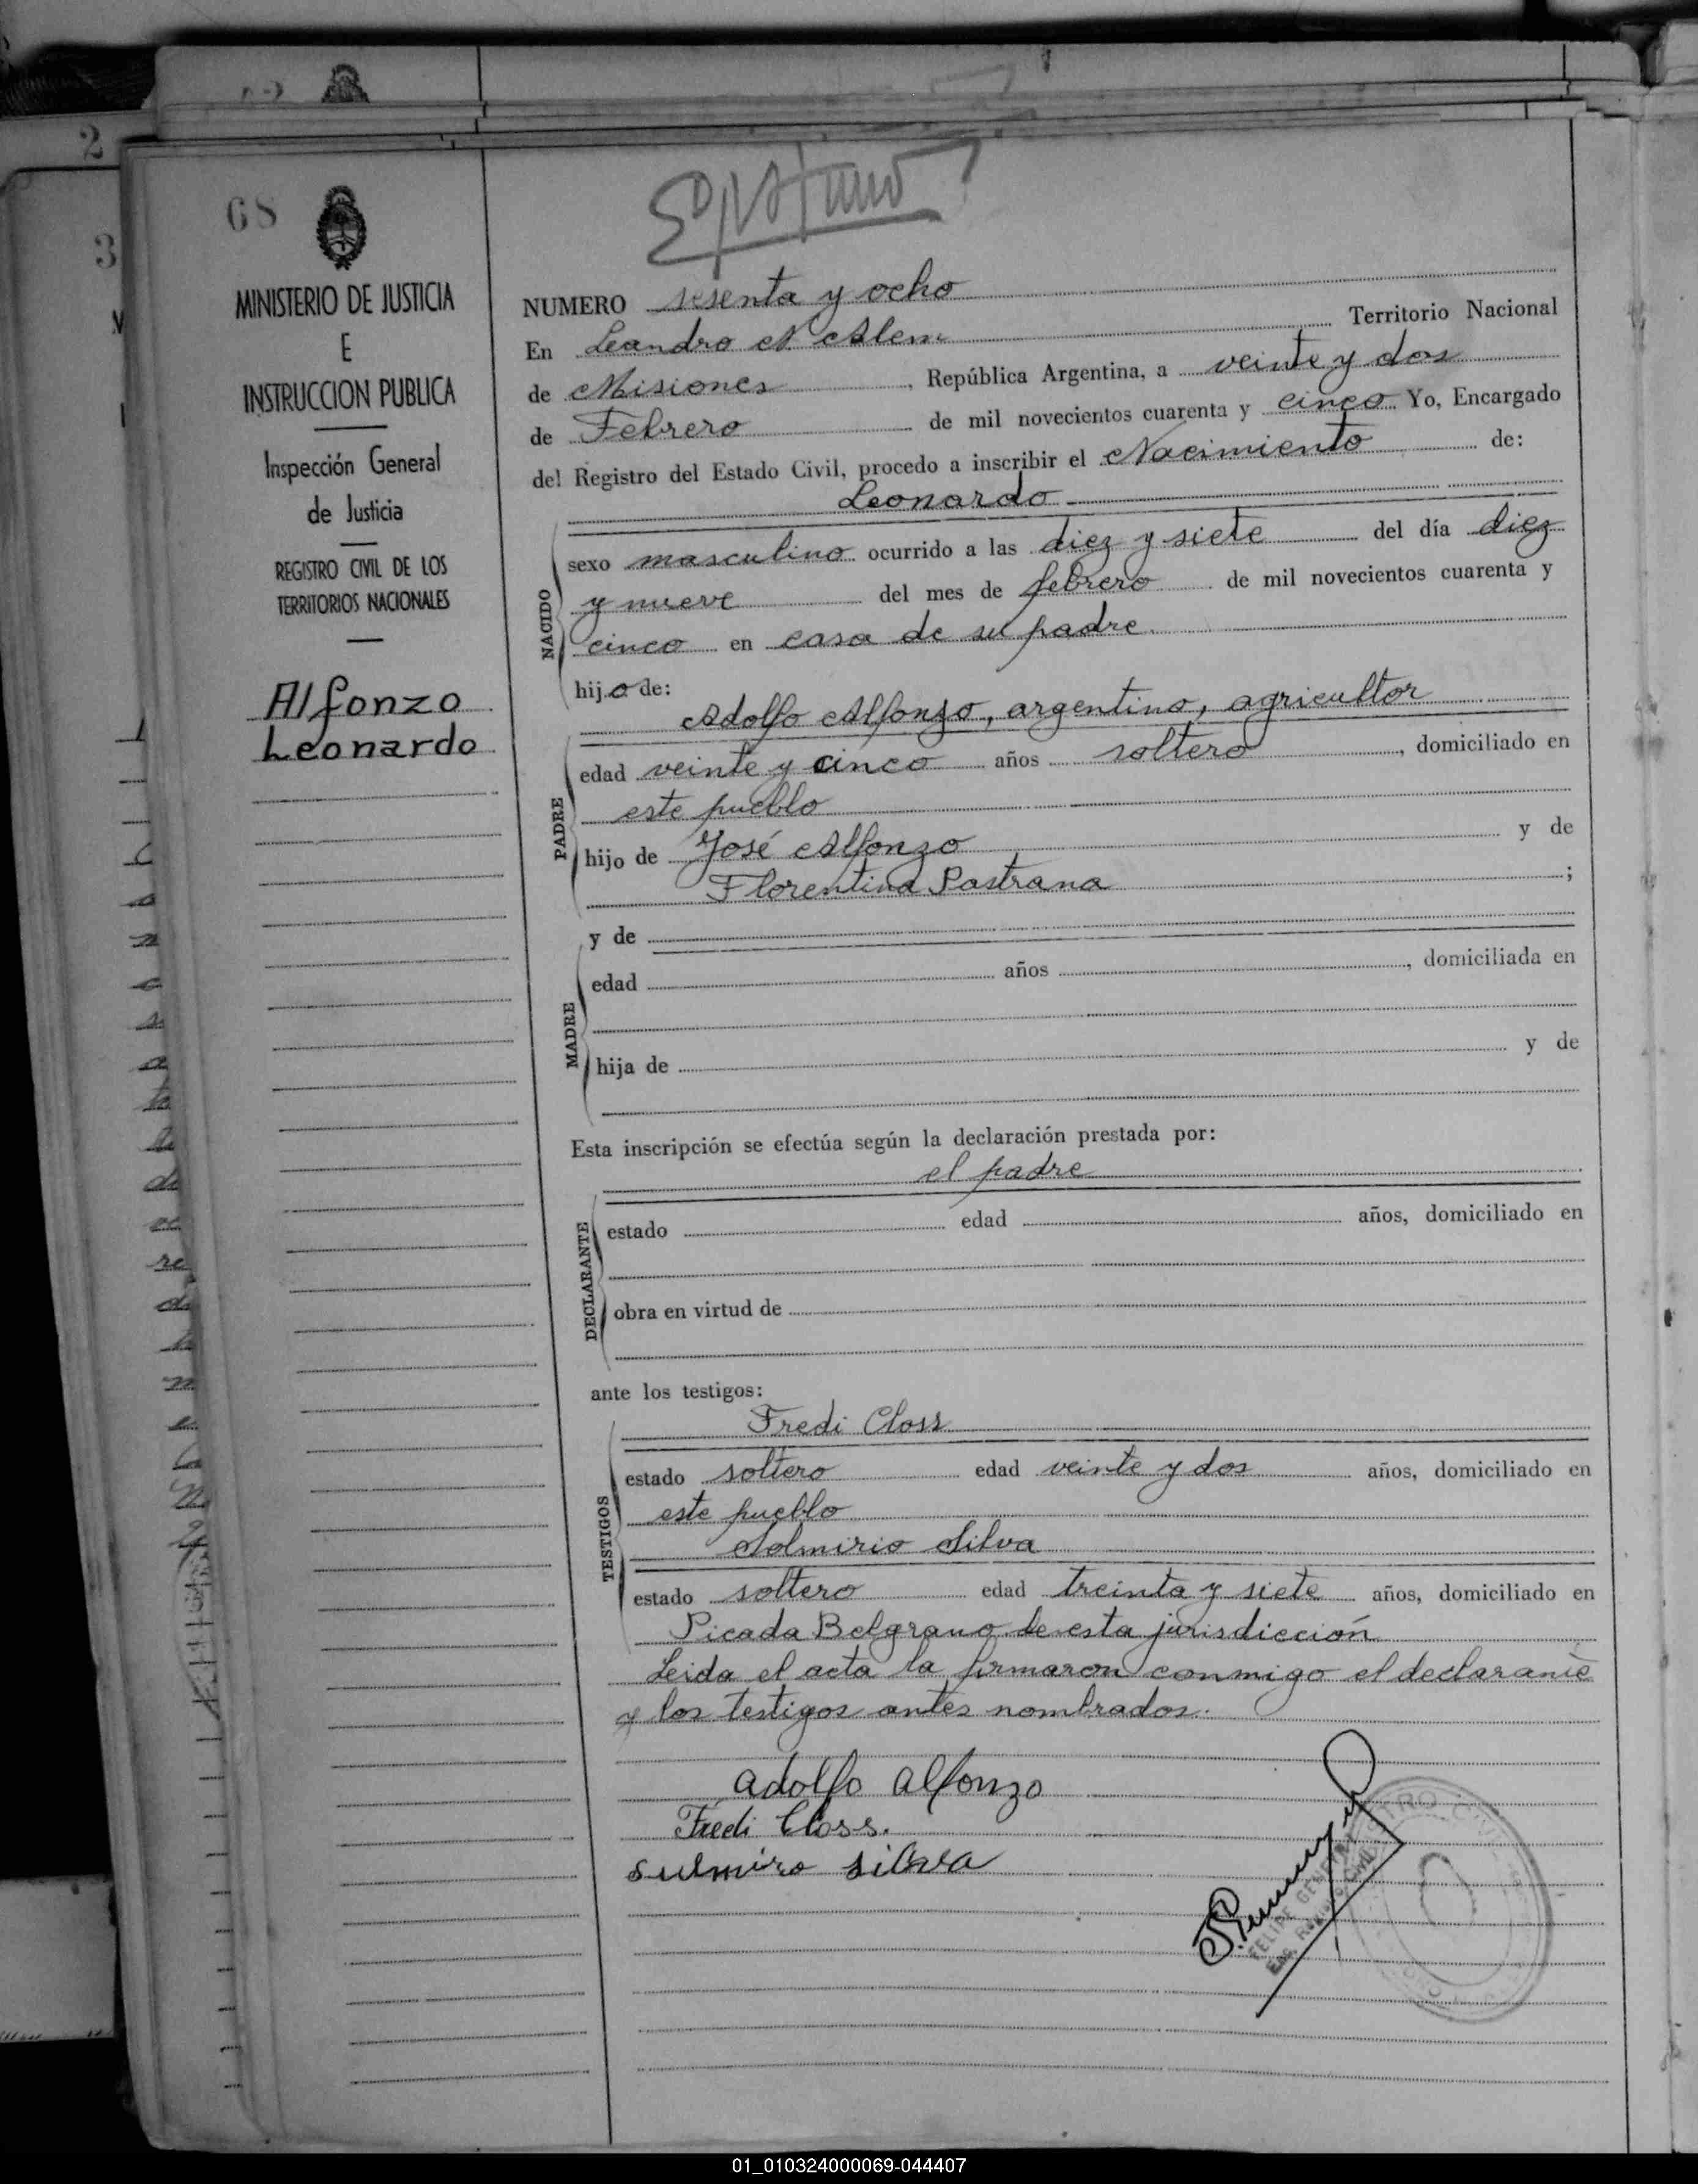 68
MINISTERIO DE JUSTICIA
E
INSTRUCCION PUBLICA
Inspección General
de Justicia
REGISTRO CIVIL DE LOS
TERRITORIOS NACIONALES
Alfonzo
Leonardo
NUMERO sesenta y ocho
En Leandro N Alem Territorio Nacional
de Misiones, República Argentina, a veinte y dos
de Febrero de mil novecientos cuarenta y cinco Yo, Encargado
del Registro del Estado Civil, procedo a inscribir el Nacimiento de:
Leonardo
NACIDO
sexo masculino ocurrido a las diez y siete del día diez
y nueve del mes de febrero de mil novecientos cuarenta y
cinco en casa de su padre
hijo de:
Adolfo Alfonzo, argentino, agricultor
PADRE
edad veinte y cinco años soltero, domiciliado en
este pueblo
hijo de José Alfonzo y de
Florentina Pastrana;
y de
MADRE
edad años, domiciliada en
hija de y de
Esta inscripción se efectúa según la declaración prestada por:
el padre
DECLARANTE
estado edad años, domiciliado en
obra en virtud de
ante los testigos:
Fredi Closs
TESTIGOS
estado soltero edad veinte y dos años, domiciliado en
este pueblo
Solmirio Silva
estado soltero edad treinta y siete años, domiciliado en
Picada Belgrano de esta jurisdicción
Leida el acta la firmaron conmigo el declarante
y los testigos antes nombrados.
Adolfo Alfonzo
Fredi Closs.
Sulmiro Silva
01_010324000069-044407